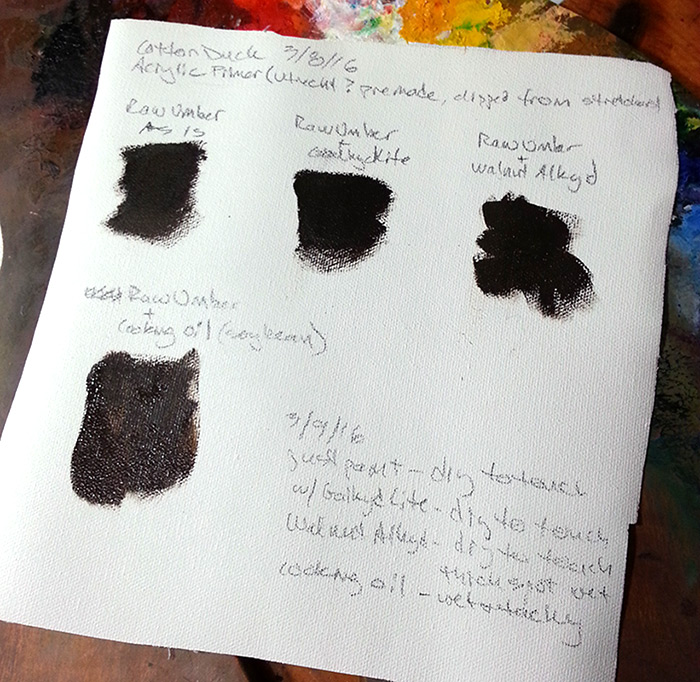 Cotton Duck 3/8/16
Acrylic Primer (Utrecht? premade, clipped from stretchers)
Raw Umber
As is
Raw Umber
+
Galkyd Lite
Raw Umber
+
Walnut Alkyd
Raw Umber
+
Cooking oil (soybean)
3/9/16
Just paint - dry to touch
w/ Galkyd Lite - dry to touch
Walnut Alkyd - dry to touch
thick spot wet
cooking oil - wet &